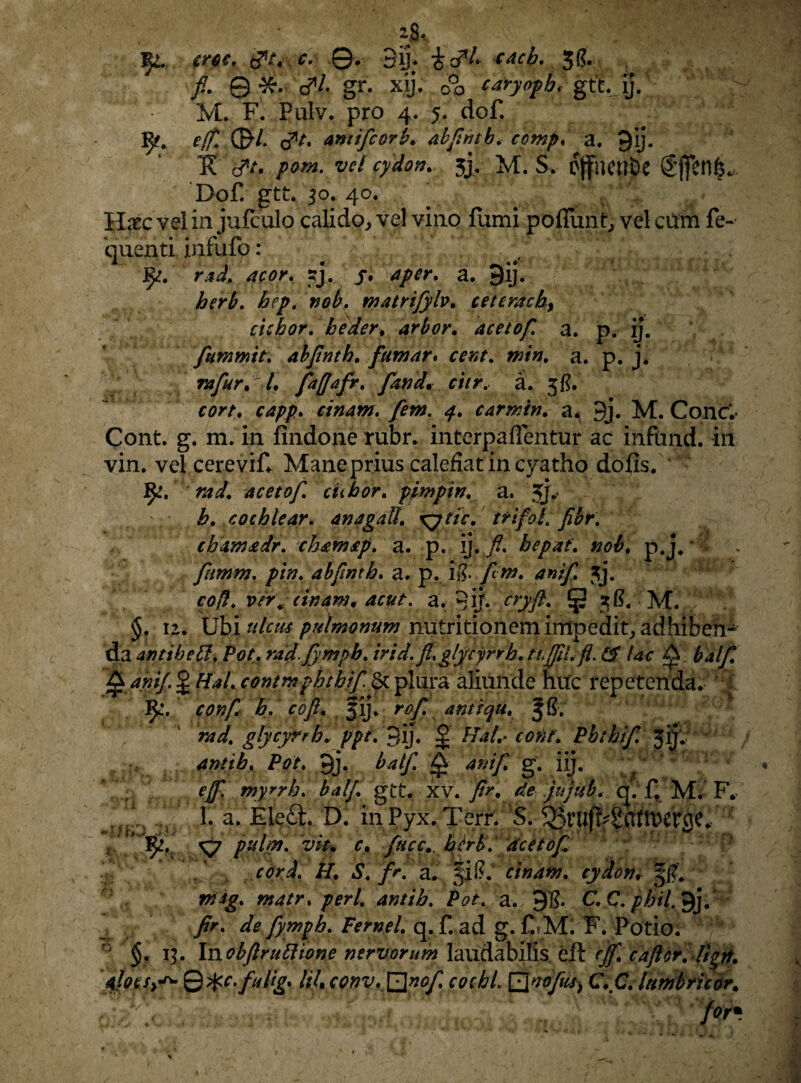 28.
℞. croc. ♂t. c. 🜔. ℈ij. ½ ♂l. cach. ʒß.
fl. 🜔 🞶. ♂l. gr. xij. o°o caryoph. gtt. ij.
M. F. Pulv. pro 4. 5. dos.
℞. eſſ. ⦶l. ♂t. antiſcorb. abſinth. comp. a. ℈ij.
R ♂t. pom. vel cydon. ʒj. M. S.
Doſ. gtt. 30. 40.
Hæc vel in juſculo calido, vel vino ſumi poſſunt, vel cum ſe-
quenti infuſo:
℞. rad. acor. ʒj. ſ. aper. a. ℈ij.
herb. hep. nob. matriſylv. ceterach,
cichor. heder. arbor. acetoſ. a. p. ij.
ſummit. abſinth. fumar. cent. min. a. p. j.
raſur. l. ſaſſafr. ſand. citr. a. ʒß.
cort. capp. cinam. ſem. 4. carmin. a. ℈j. M. Conc.
Cont. g. m. in ſindone rubr. interpaſſentur ac infund. in
vin. vel cereviſ. Mane prius calefiat in cyatho doſis.
℞. rad. acetoſ. cichor. pimpin. a. ʒj.
h. cochlear. anagall. tic. trifol. fibr.
chamædr. chamæp. a. p. ij. fl. hepat. nob. p. j.
ſumm. pin. abſinth. a. p. iß. ſem. aniſ. ʒj.
coſt. ver. cinam. acut. a. ℈ij. cryſt. ʒß. M.
§. 12. Ubi ulcus pulmonum nutritionem impedit, adhiben-
da antihect. Pot. rad. ſymph. irid. fl. glycyrrh. tuſſil. fl. & lac 🜍 balſ.
🜍 aniſ. Hal. contraphthiſ. & plura aliunde huc repetenda.
℞. conſ. h. coſt. ℥ij. roſ. antiqu. ℥ß.
rad. glycyrrh. ppt. ℈ij. Hal. cont. Phthiſ. ʒij.
antih. Pot. ℈j. balſ. 🜍 aniſ. g. iij.
eſſ. myrrh. balſ. gtt. xv. ſir. de jujub. q. ſ. M. F.
l. a. Elect. D. in Pyx. Terr. S. Bruſt-Lattwerge.
℞. pulm. vit. c. ſucc. herb. acetoſ.
cord. H. S. fr. a. ℥iß. cinam. cydon. ℥ß.
mag. matr. perl. antih. Pot. a. ℈ß. C. C. phil. ℈j.
ſir. de ſymph. Fernel. q. ſ. ad g. ſ. M. F. Potio.
§. 13. In obſtructione nervorum laudabilis eſt eſſ. caſtor. lign.
aloes, 🜔 🞶c. fulig. lil. conv. noſ. cochl. noſus, C. C. lumbricor.
for-